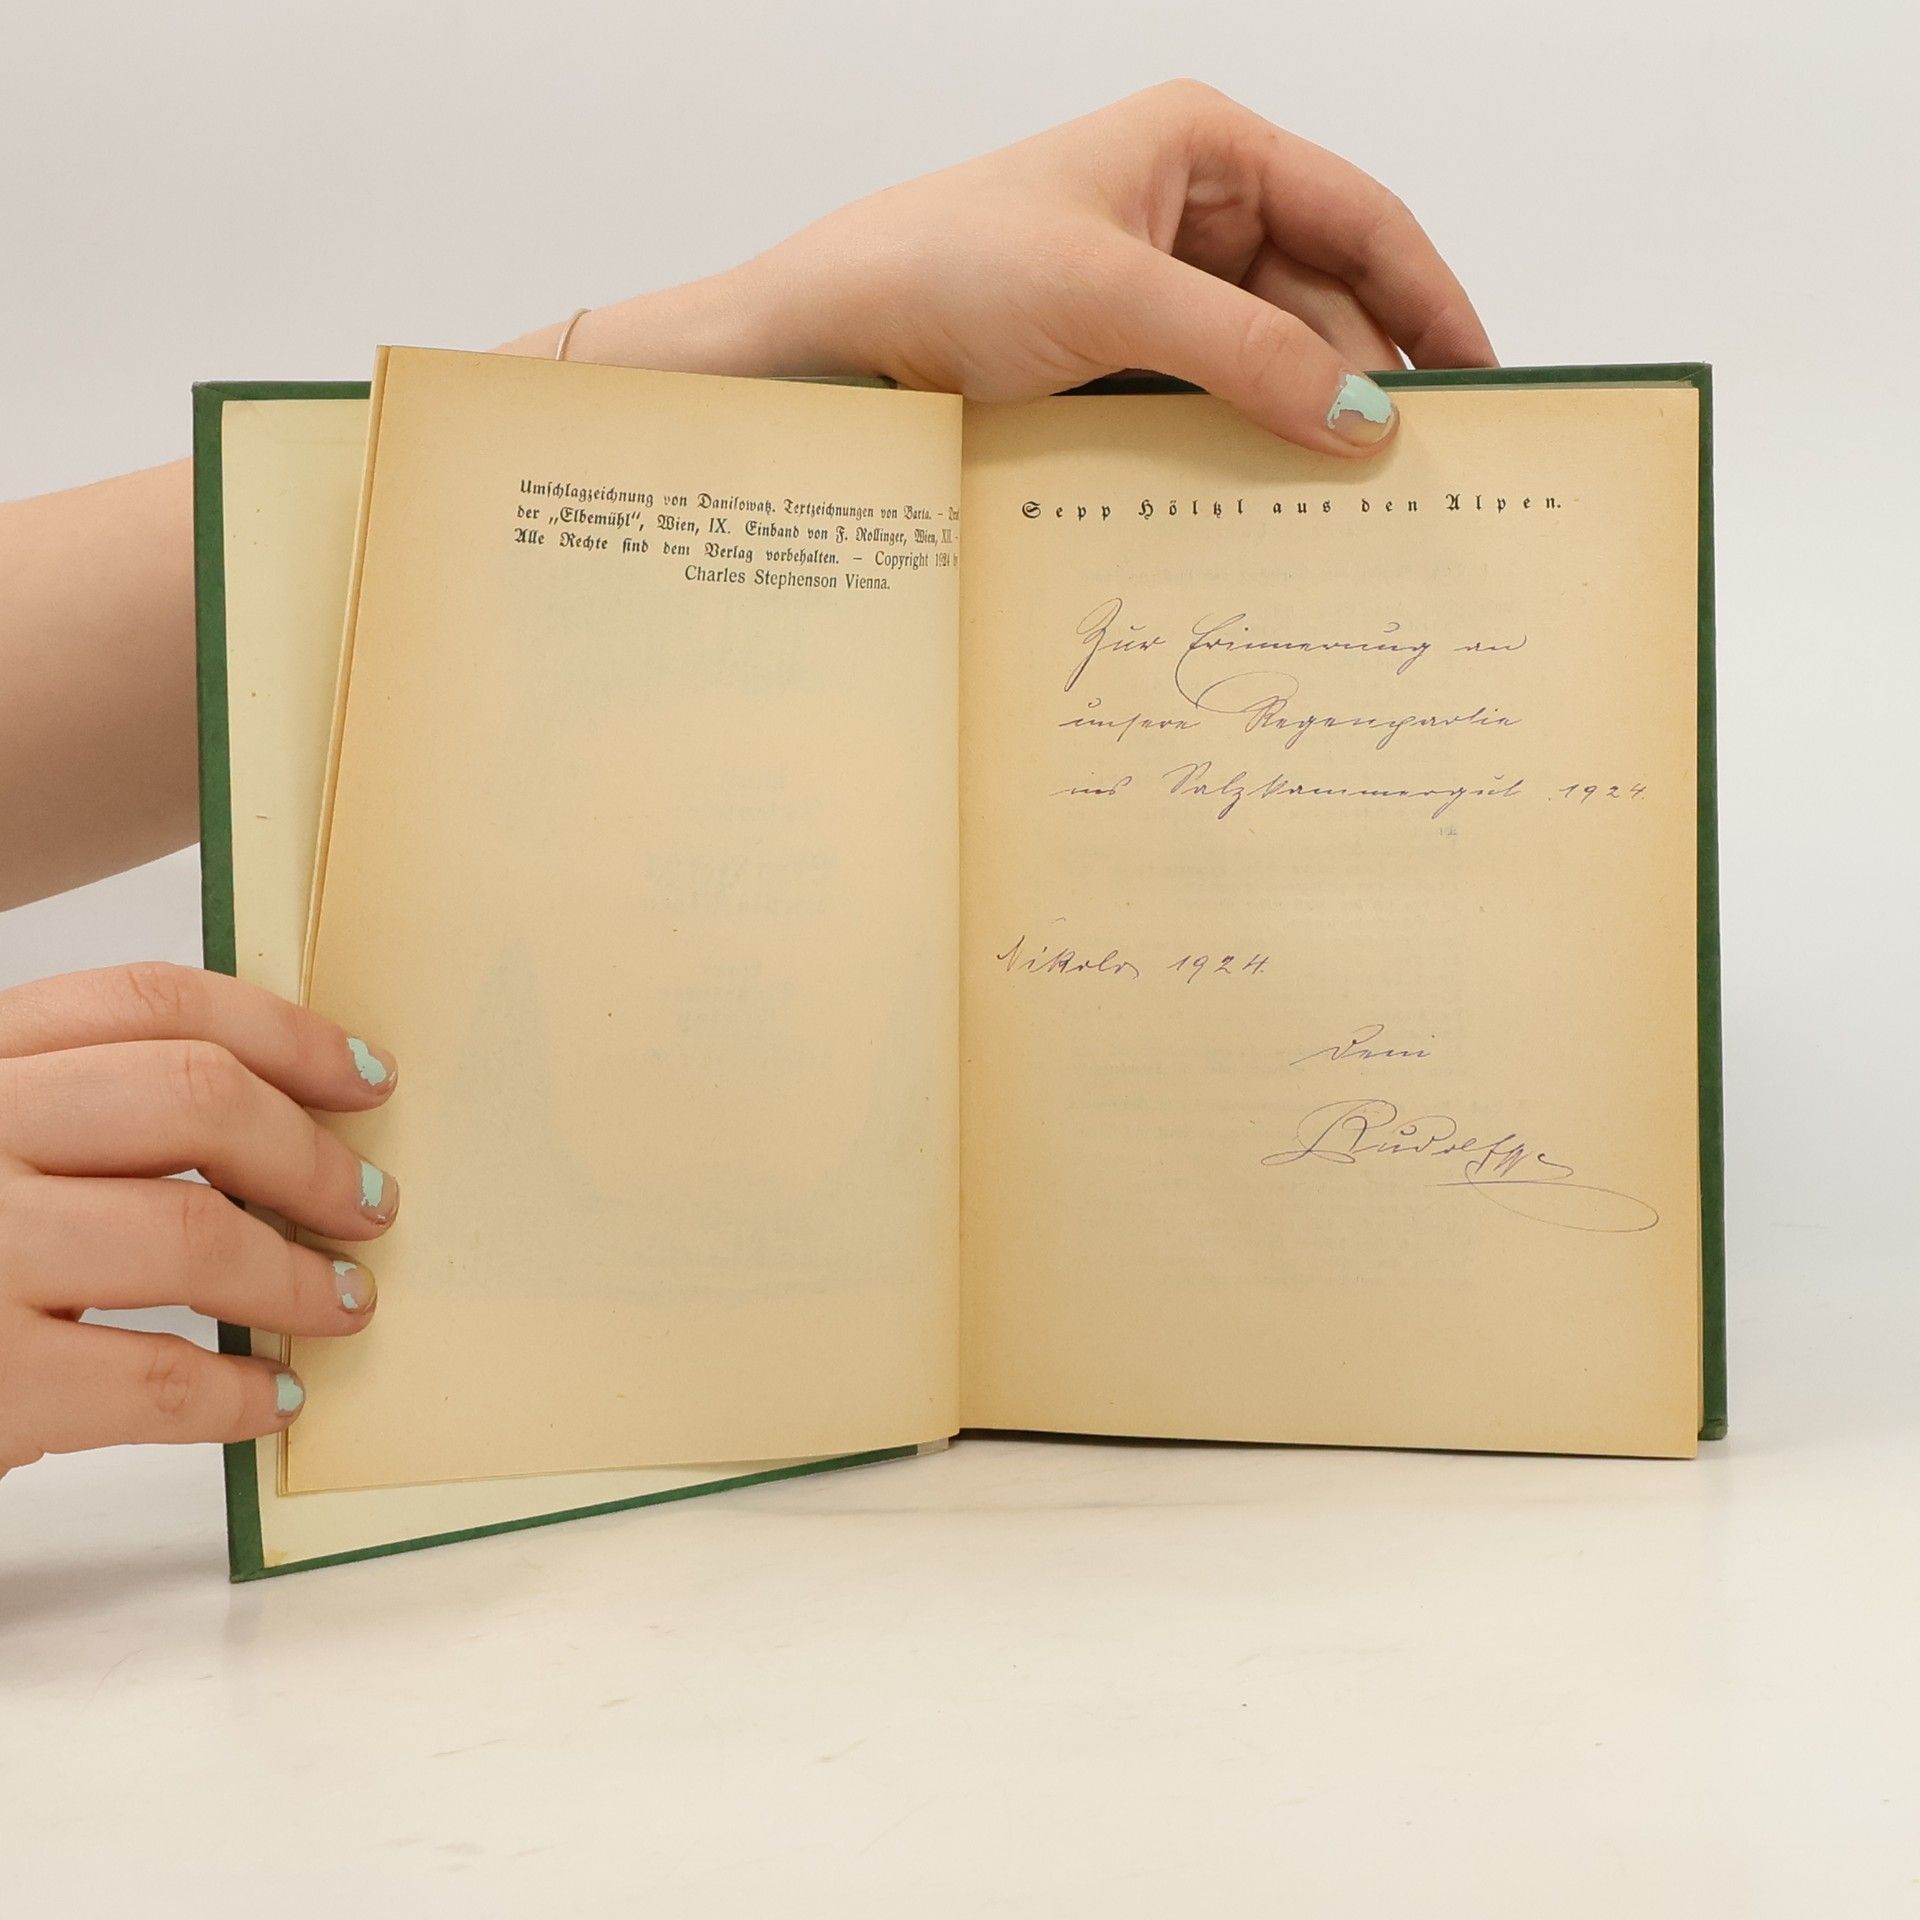 Umschlagzeichnung von Danilowatz. Textzeichnungen von Barta. –
der „Elbemühl“, Wien, IX. Einband von F. Rollinger, Wien, XII. –
Alle Rechte sind dem Verlag vorbehalten. – Copyright 1924 by
Charles Stephenson Vienna.
Sepp Höltzl aus den Alpen.
Zur Erinnerung an
unsere Regenpartie
ins Salzkammergut 1924.
Nikolo 1924.
Dein